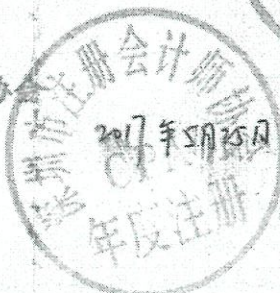 深圳市注册会计师协会
2017年5月25日
CPA
年度注册